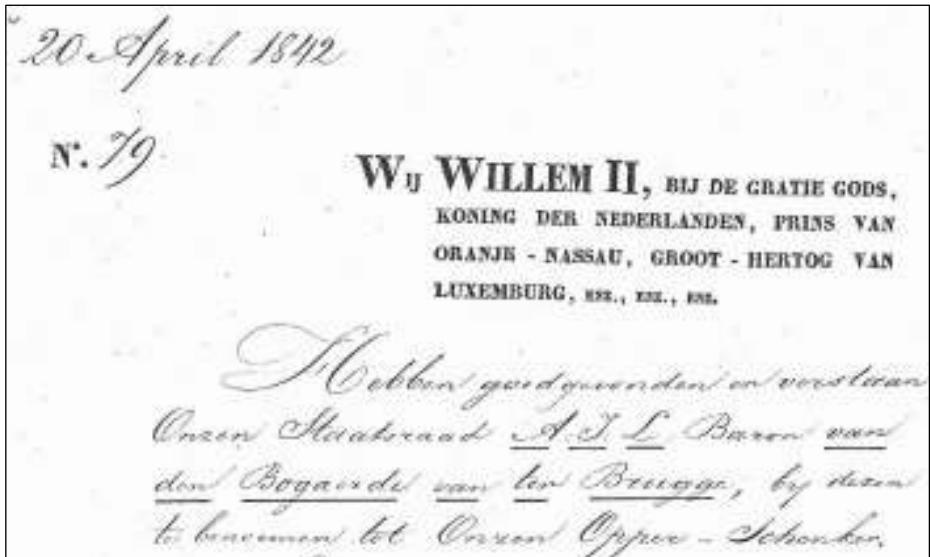 20 April 1842
N°. 79
WIJ WILLEM II, BIJ DE GRATIE GODS,
KONING DER NEDERLANDEN, PRINS VAN
ORANJE - NASSAU, GROOT - HERTOG VAN
LUXEMBURG, ENZ., ENZ., ENZ.
Hebben goedgevonden en verstaan
Onzen Staatsraad A. J. L. Baron van
den Bogaerde van ter Brugge, bij dezen
te benoemen tot Onzen Opper - Schenker.